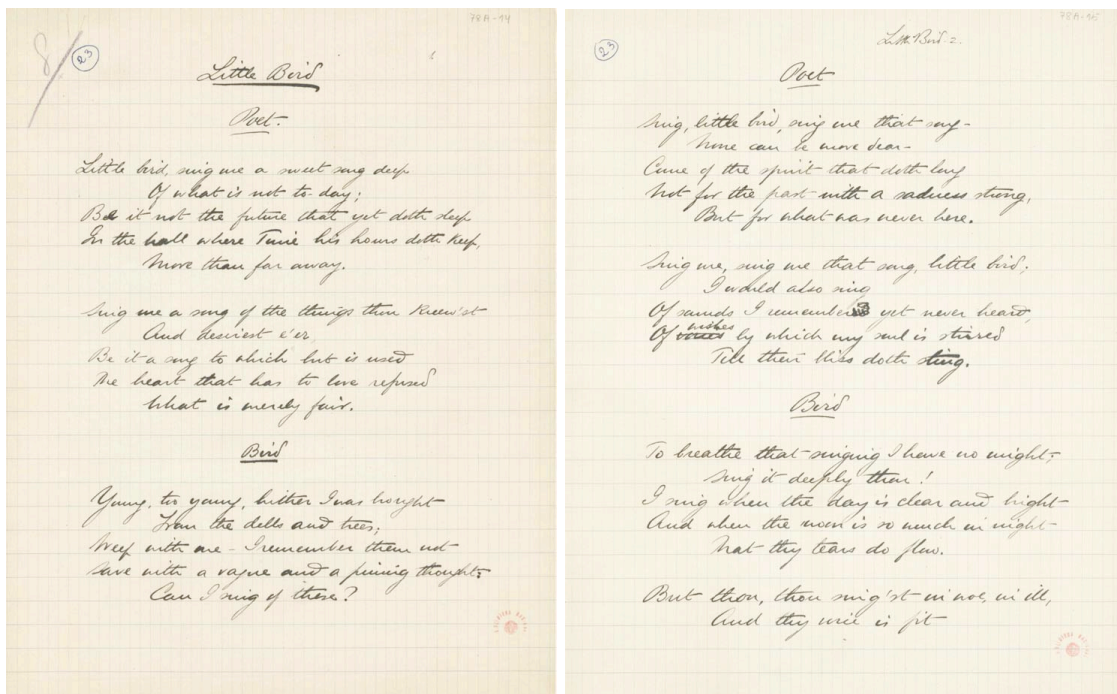 78A-14
8/
23
Little Bird
Poet.
Little bird, sing me a sweet song deep
Of what is not to-day;
Be it not the future that yet doth sleep
In the hall where Time his hours doth keep,
More than far away.
Sing me a song of the things thou knew'st
And desirest e'er,
Be it a song to which but is used
The heart that has to love refused
What is merely fair.
Bird
Young, too young, hither I was brought
From the dells and trees;
Weep with me - I remember them not
Save with a vague and a pining thought:
Can I sing of these?
78A-15
23
Little Bird. 2.
Poet
Sing, little bird, sing me that song -
None can be more dear -
Came of the spirit that doth long
Not for the past with a sadness strong,
But for what was never here.
Sing me, sing me that song, little bird;
I would also sing
Of sounds I remember yet never heard,
wishes
Of by which my soul is stirred
Till their bliss doth sting.
Bird
To breathe that singing I have no might;
Sing it deeply thou!
I sing when the day is clear and bright
And when the moon is so much in night
That thy tears do flow.
But thou, thou sing'st in woe, in ill,
And thy voice is fit